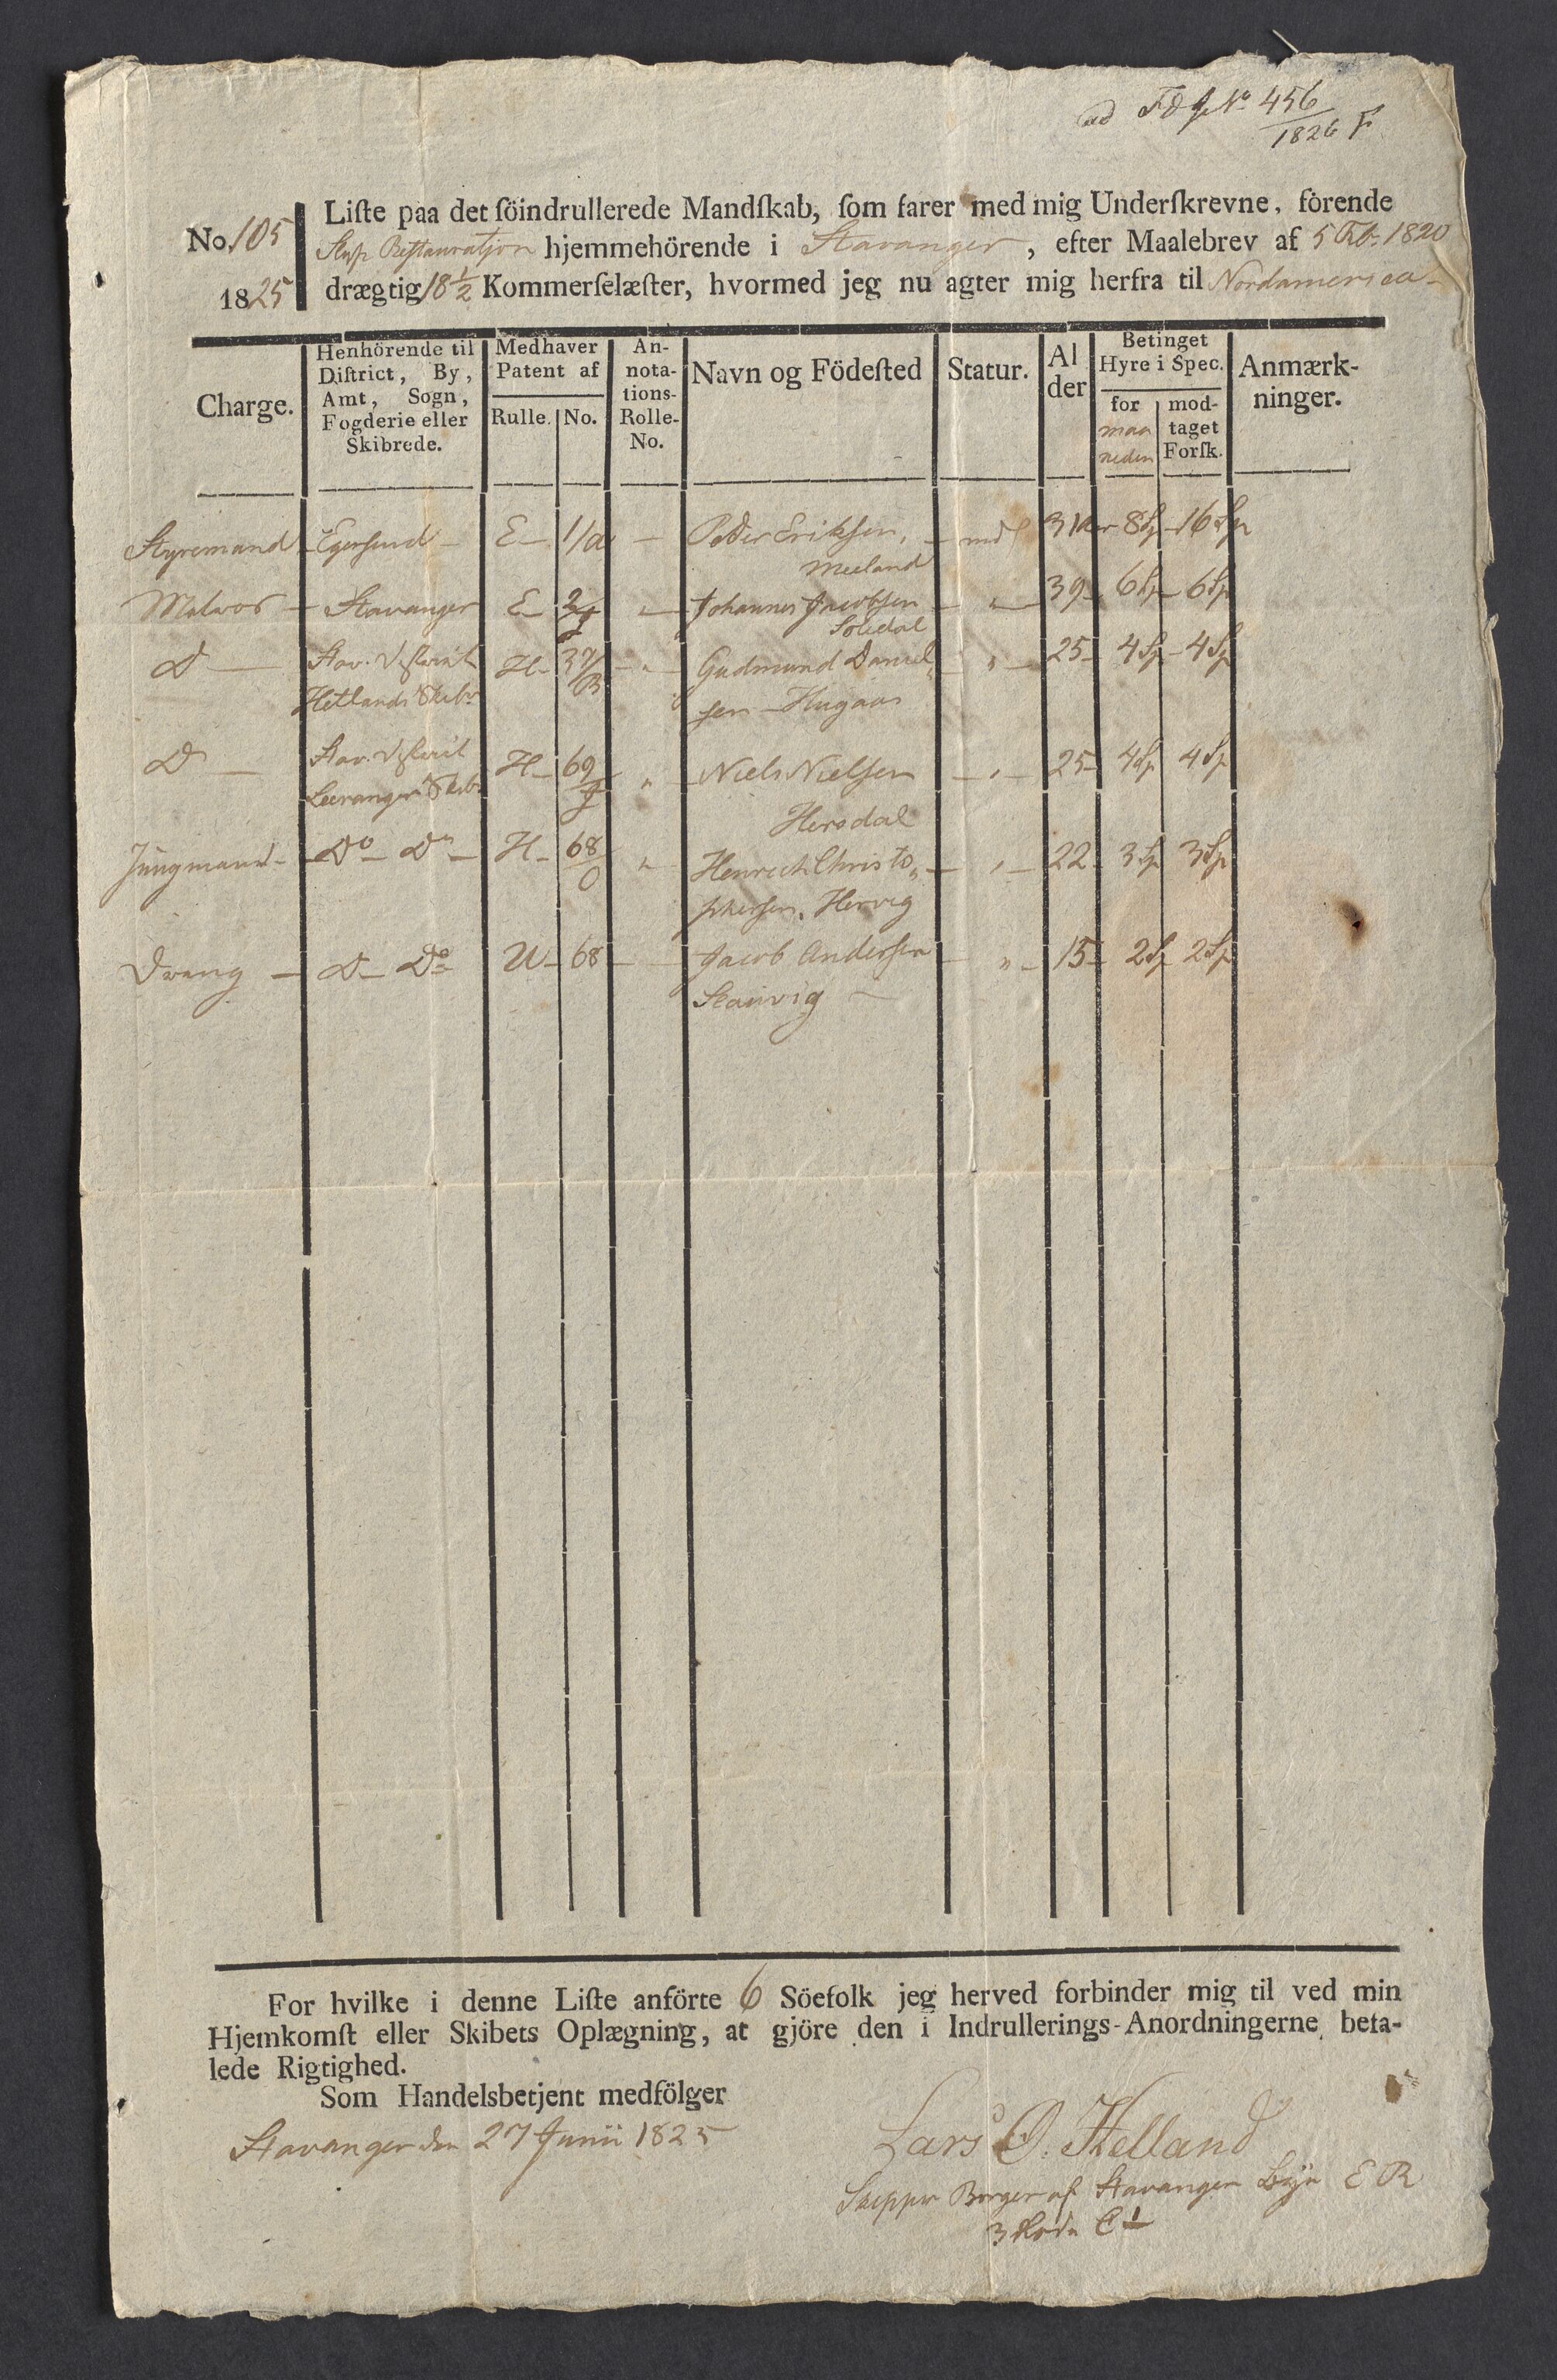 ad No 456
1826
No. 105
1825
Liſte paa det ſöindrullerede Mandſkab, ſom farer med mig Underſkrevne, förende
Slup Restaurasjon hjemmehörende i Stavanger, efter Maalebrev af 5 1820
drægtig 18 1/2 Kommerſelæſter, hvormed jeg nu agter mig herfra til Nordamerica
Charge.
Henhörende til
Diſtrict, By,
Amt, Sogn,
Fogderie eller
Skibrede.
Medhaver
Patent af
Rulle. No.
An-
nota-
tions-
Rolle-
No.
Navn og Födeſted
Statur.
Al
der
Betinget
Hyre i Spec.
for
maa
neden
mod-
taget
Forſk.
Anmærk-
ninger.
Styremand - Egersund - E - 1/a - Peder Eriksen, - md 31 Aar 8 Sp - 16 Sp
Meeland
Matros - Stavanger E - 2/J " Johannes Jacobsen - " - 39 - 6 Sp - 6 Sp
Soledal
D - Stav. District H - 37/B - " Gudmund Daniel „ " - 25 - 4 Sp - 4 Sp
Hetlands Skibr sen - Hugaas
D - Stav. District H - 69/J " - Niels Nielsen - " - 25 - 4 Sp 4 Sp
Skibr
Hersdal
Jungmand - Do - Do - H - 68/O " Henrich Christo „ - " - 22 - 3 Sp 3 Sp
phersen, Hervig
Dreng - D - Do U - 68 - Jacob Andersen - " - 15 - 2 Sp 2 Sp
Slaavig -
For hvilke i denne Liſte anförte 6 Söefolk jeg herved forbinder mig til ved min
Hjemkomſt eller Skibets Oplægning, at gjöre den i Indrullerings-Anordningerne beta-
lede Rigtighed.
Som Handelsbetjent medfölger
Stavanger den 27 Junii 1825
Lars O. Helland
Skipper Borger af Stavanger Bye E R
3